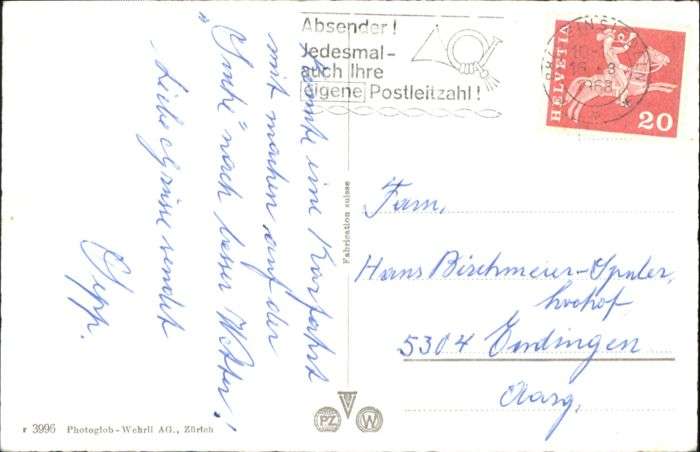 Absender!
Jedesmal-
auch Ihre
eigene Postleitzahl!
HELVETIA
20
konnte eine Kurfahrt
mit machen auf der
nach besser Wetter!
Liebe Grüsse sendet
Sepp.
Fabrication suisse
Fam.
Hans Birchmeier-Spuler,
5304 Endingen
Aarg.
r 3996 Photoglob-Wehrli AG., Zürich
PZ
W